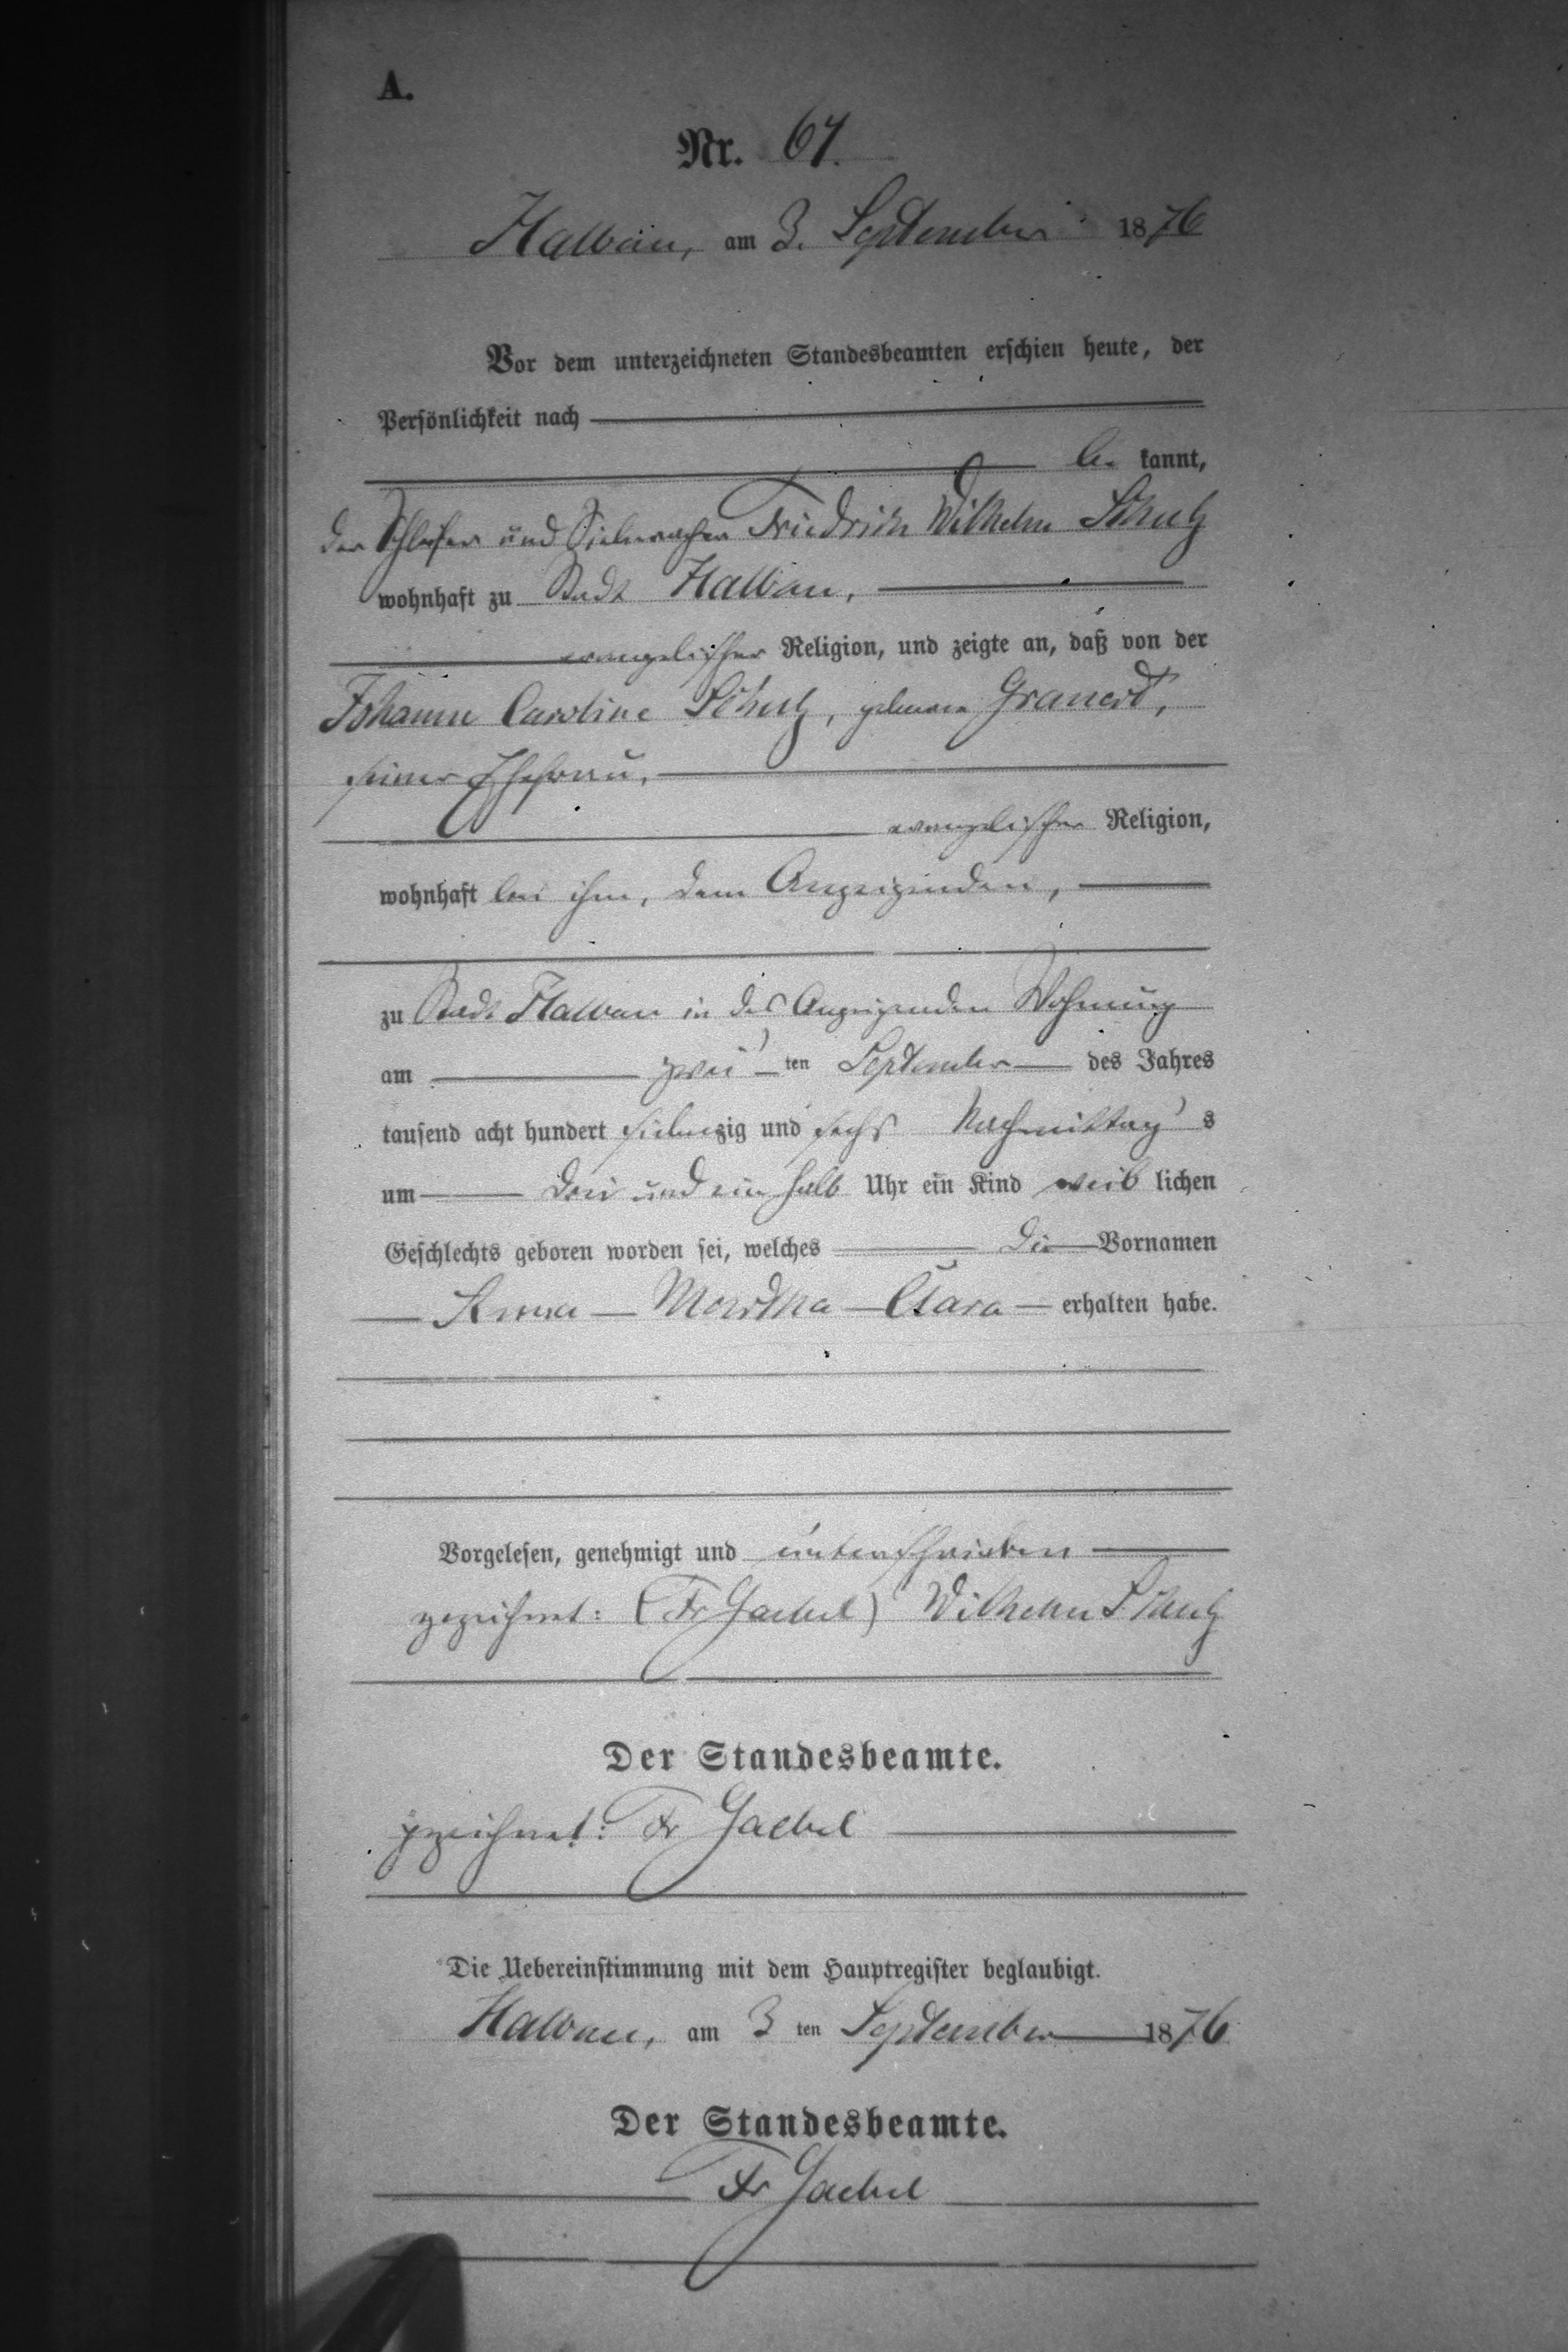 A.
Nr. 67.
Halbau, am 3. September 1876
Vor dem unterzeichneten Standesbeamten erschien heute, der
Persönlichkeit nach
be kannt,
der Schleifer und Siebmacher Friedrich Wilhelm Schulz
wohnhaft zu Stadt Halbau,
evangelischer Religion, und zeigte an, daß von der
Johanne Caroline Schulz, geborene Granert,
seiner Ehefrau,
evangelischer Religion,
wohnhaft bei ihm, dem Anzeigenden,
zu Stadt Halbau in des Anzeigenden Wohnung
am zwei ten September des Jahres
tausend acht hundert siebenzig und sechs Nachmittag s
um drei und ein halb Uhr ein Kind weib lichen
Geschlechts geboren worden sei, welches die Vornamen
Anna Martha Clara erhalten habe.
Vorgelesen, genehmigt und unterschrieben
gezeichnet: (Fr Gaebel) Wilhelm Schulz
Der Standesbeamte.
gezeichnet: Fr Gaebel
Die Uebereinstimmung mit dem Hauptregister beglaubigt.
Halbau, am 3 ten September 1876
Der Standesbeamte.
Fr Gaebel